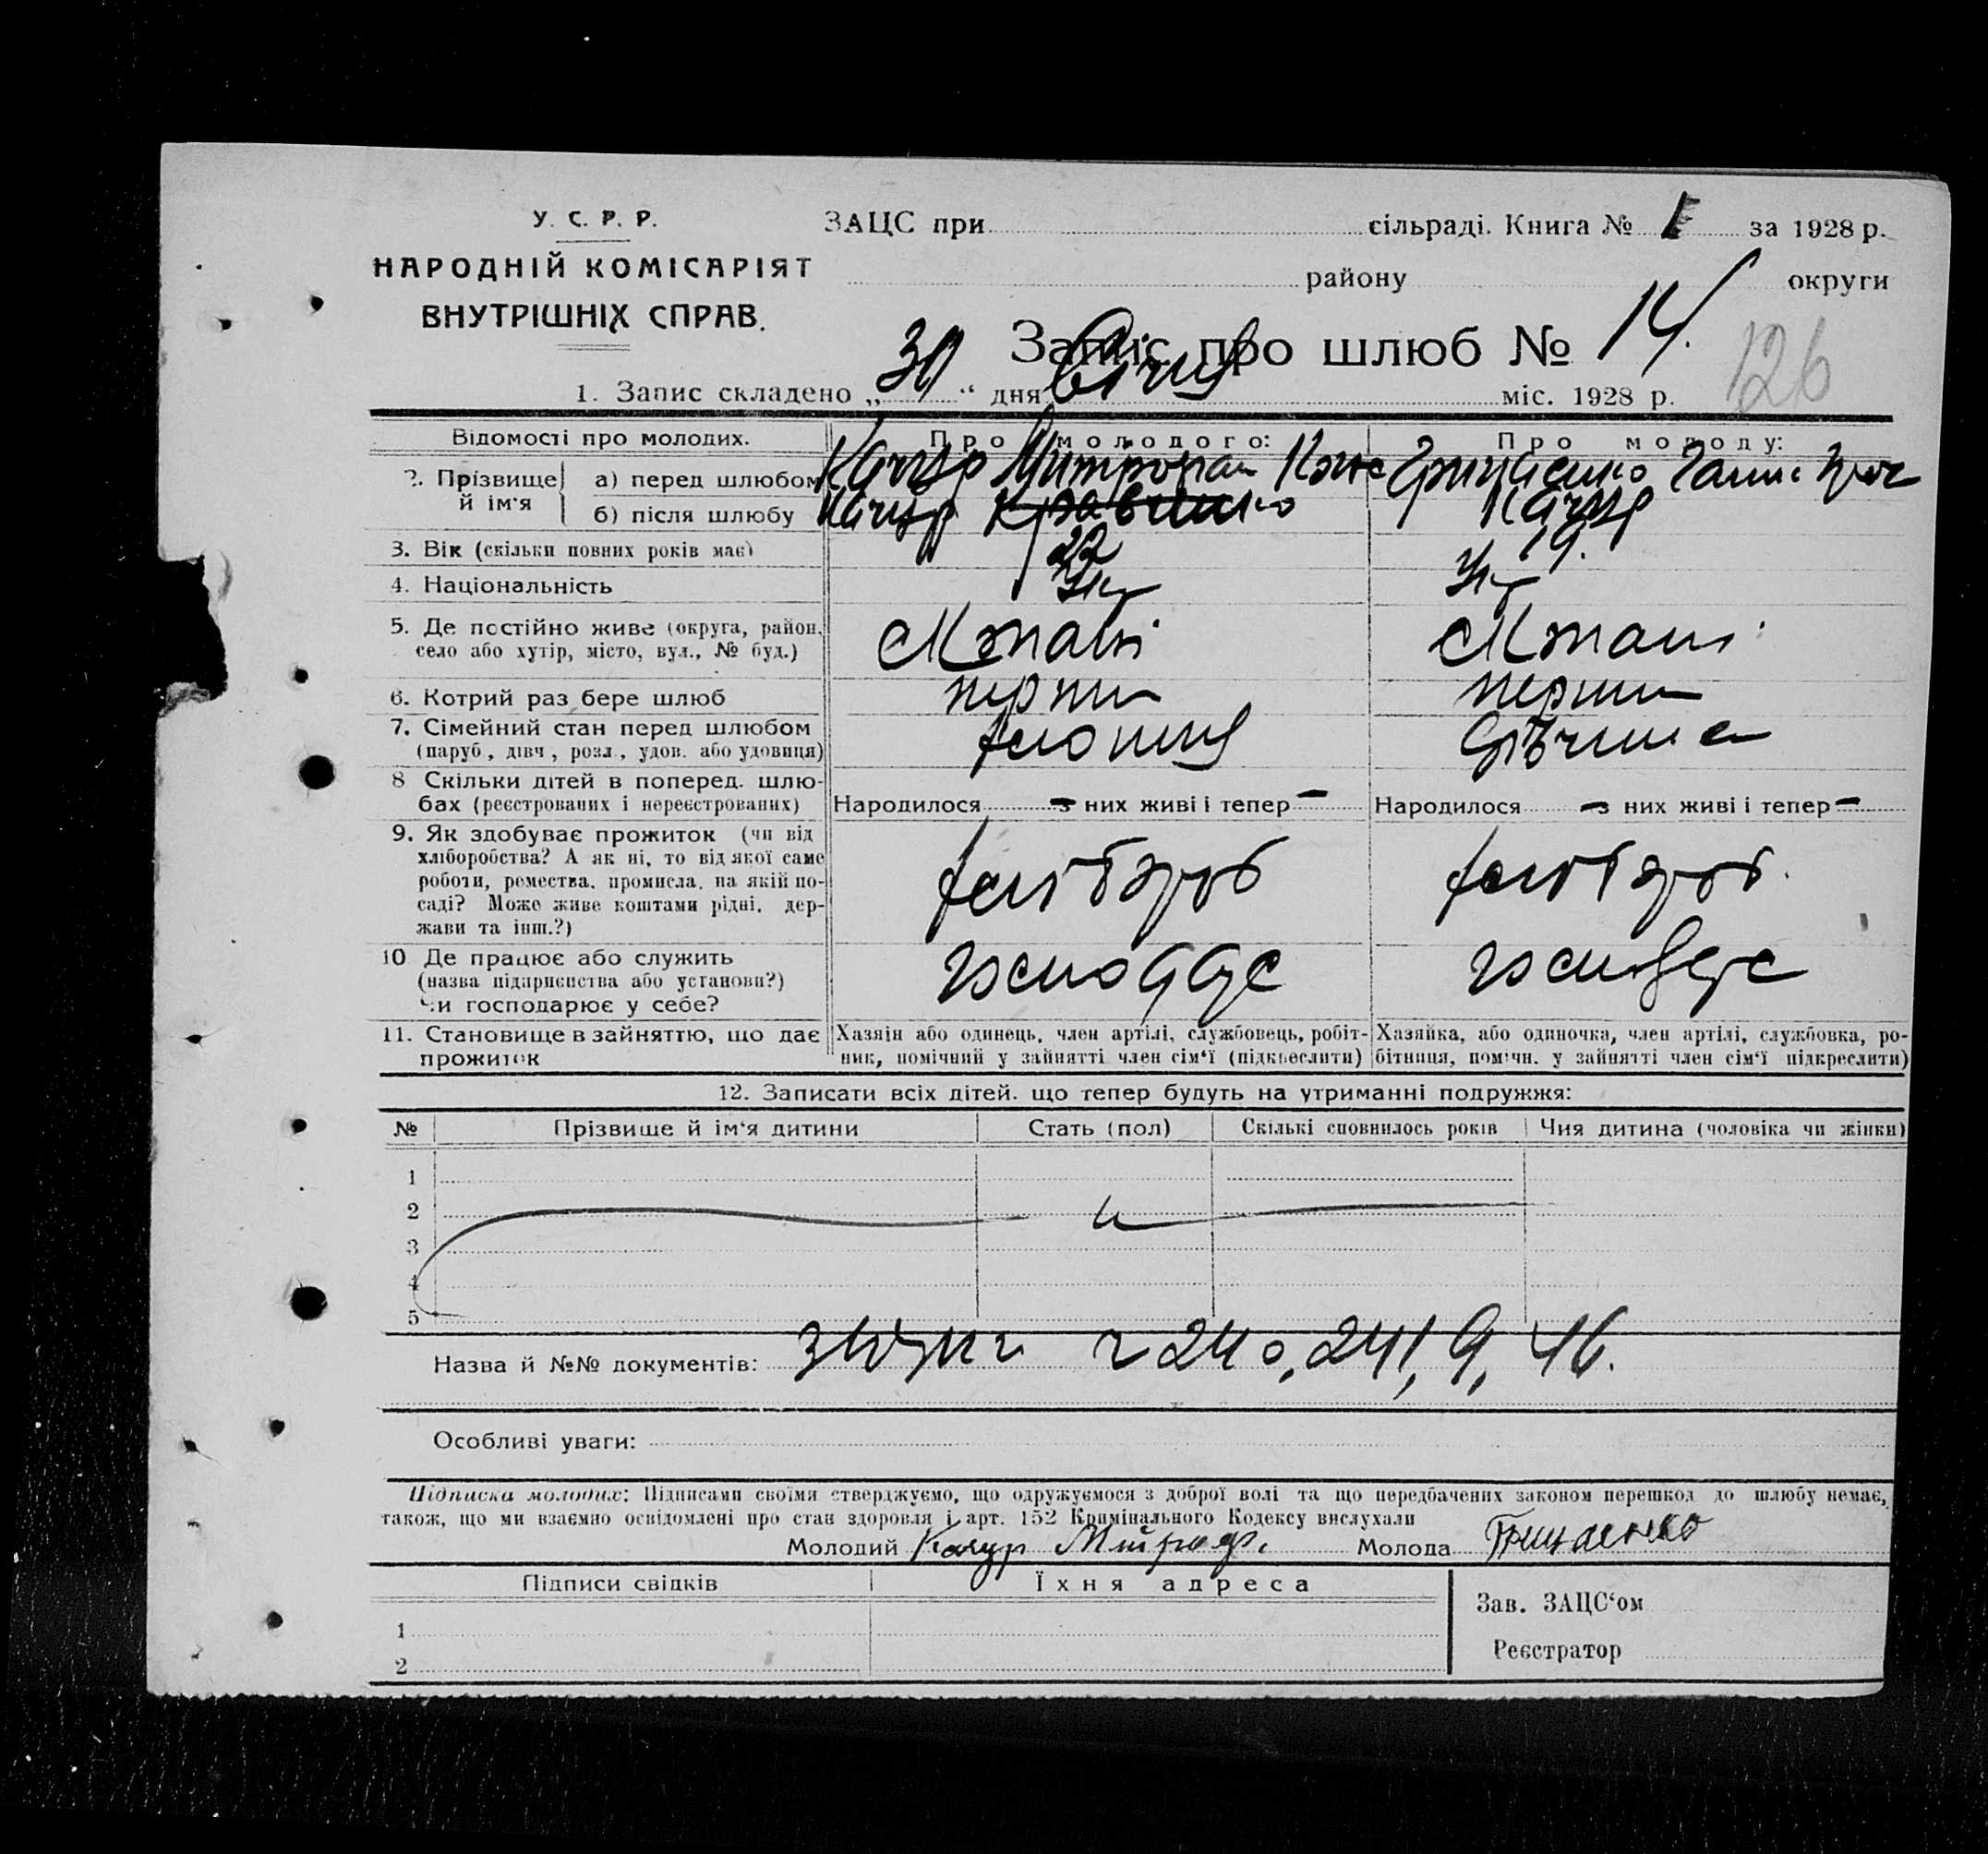 У. С. Р. Р.
НАРОДНІЙ КОМІСАРІЯТ
ВНУТРІШНІХ СПРАВ.
ЗАЦС при сільраді. Книга № за 1928 р.
району округи
Запис про шлюб № 14.
126
1. Запис складено „30“ дня Січня міс. 1928 р.
Відомості про молодих. Про молодого: Про молоду:
2. Прізвище й ім'я а) перед шлюбом Качур Митрофан Гриценко Ганна
б) після шлюбу Качур Качур
3. Вік (скільки повних років має) 22 19.
4. Національність Укр Укр
5. Де постійно живе (округа, район,
село або хутір, місто, вул., № буд.)
6. Котрий раз бере шлюб перший перший
7. Сімейний стан перед шлюбом
(паруб., дівч., розл., удов. або удовиця) дівчина
8 Скільки дітей в поперед. шлю-
бах (реєстрованих і нереєстрованих) Народилося – з них живі і тепер – Народилося – з них живі і тепер –
9. Як здобуває прожиток (чи від
хліборобства? А як ні, то від якої саме
роботи, ремества, промисла, на якій по-
саді? Може живе коштами рідні, дер-
жави та інш.?) хлібороб хлібороб.
10 Де працює або служить
(назва підприємства або установи?)
Чи господарює у себе?
11. Становище в зайняттю, що дає
прожиток
Хазяїн або одинець, член артілі, службовець, робіт-
ник, помічний у зайнятті член сім'ї (підкреслити)
Хазяйка, або одиночка, член артілі, службовка, ро-
бітниця, помічн. у зайнятті член сім'ї підкреслити)
12. Записати всіх дітей, що тепер будуть на утриманні подружжя:
№ Прізвище й ім'я дитини Стать (пол) Скількі сповнилось років Чия дитина (чоловіка чи жінки)
1
2
3
4
5
Назва й №№ документів: 240, 241, 9, 46.
Особливі уваги:
Підписка молодих: Підписами своїми стверджуємо, що одружуємося з доброї волі та що передбачених законом перешкод до шлюбу немає,
також, що ми взаємно освідомлені про стан здоровля і арт. 152 Кримінального Кодексу вислухали
Молодий Качур Митроф. Молода Гриценко
Підписи свідків Їхня адреса
Зав. ЗАЦС'ом
1
Реєстратор
2